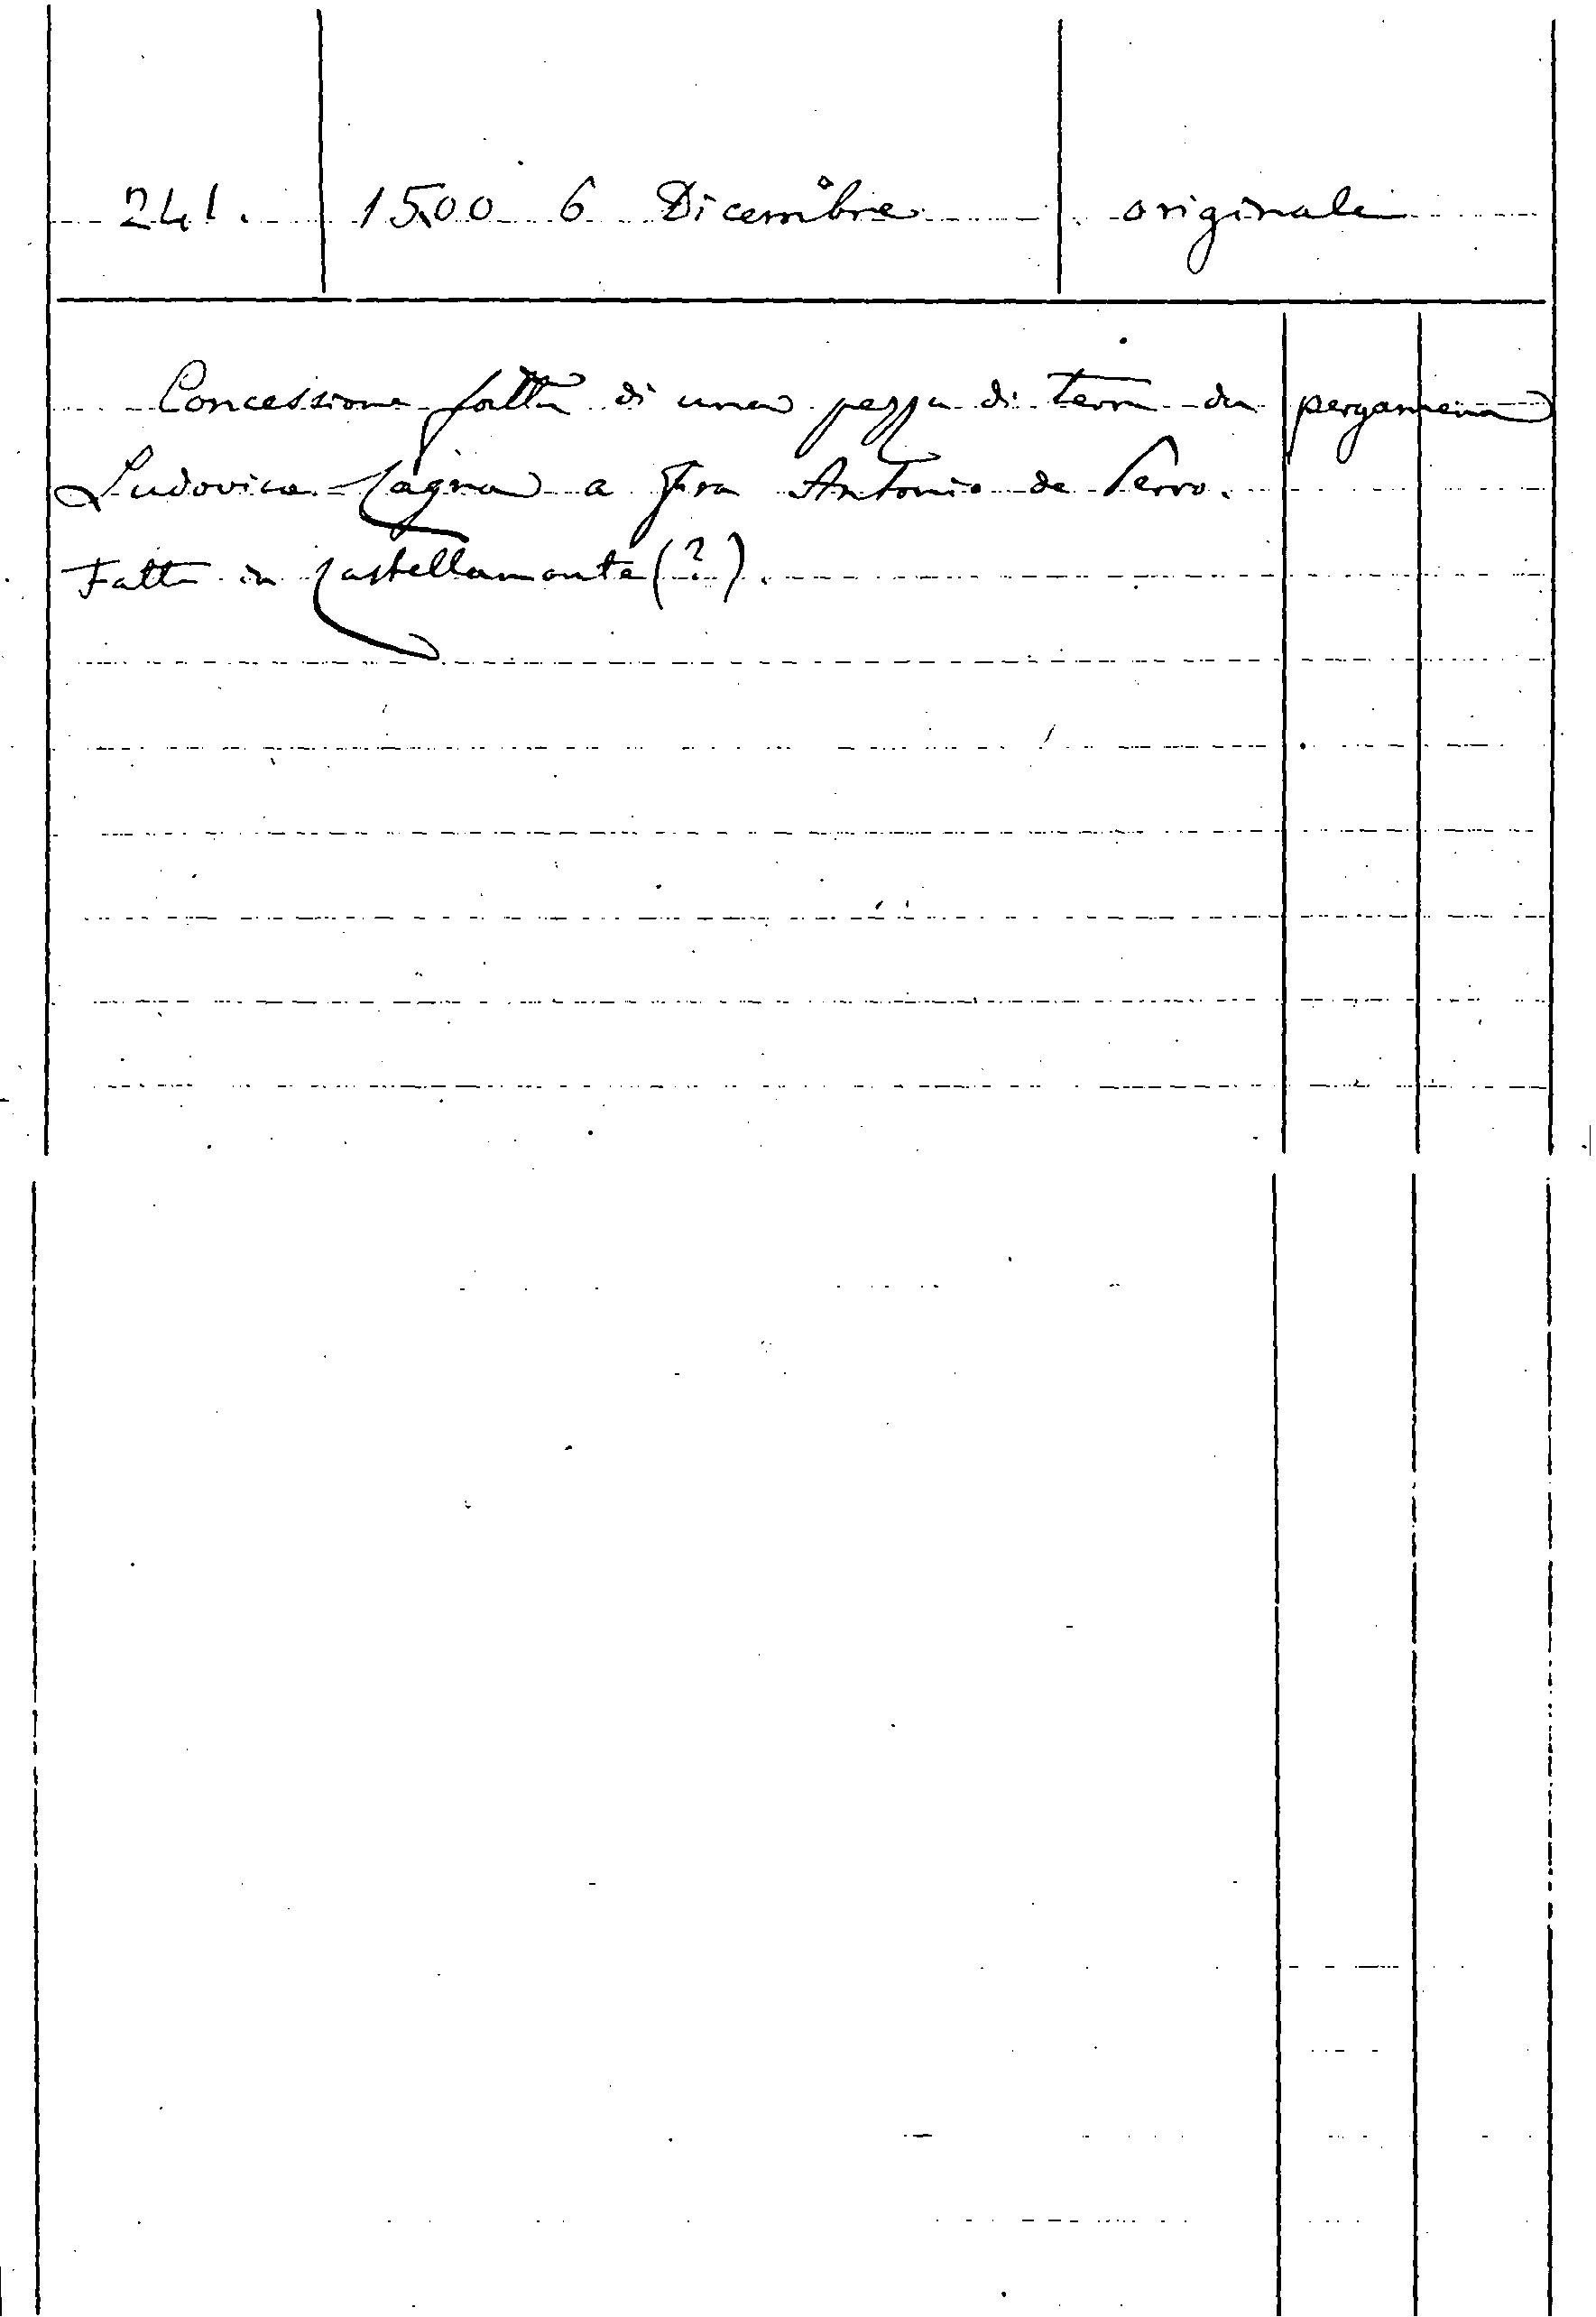 241. 1500 6 Dicembre originale
Concessione fatta di una pezza di terra da pergamena
Ludovica Cagna a Fra Antonio de Perro.
Fatta in Castellamonte (?).